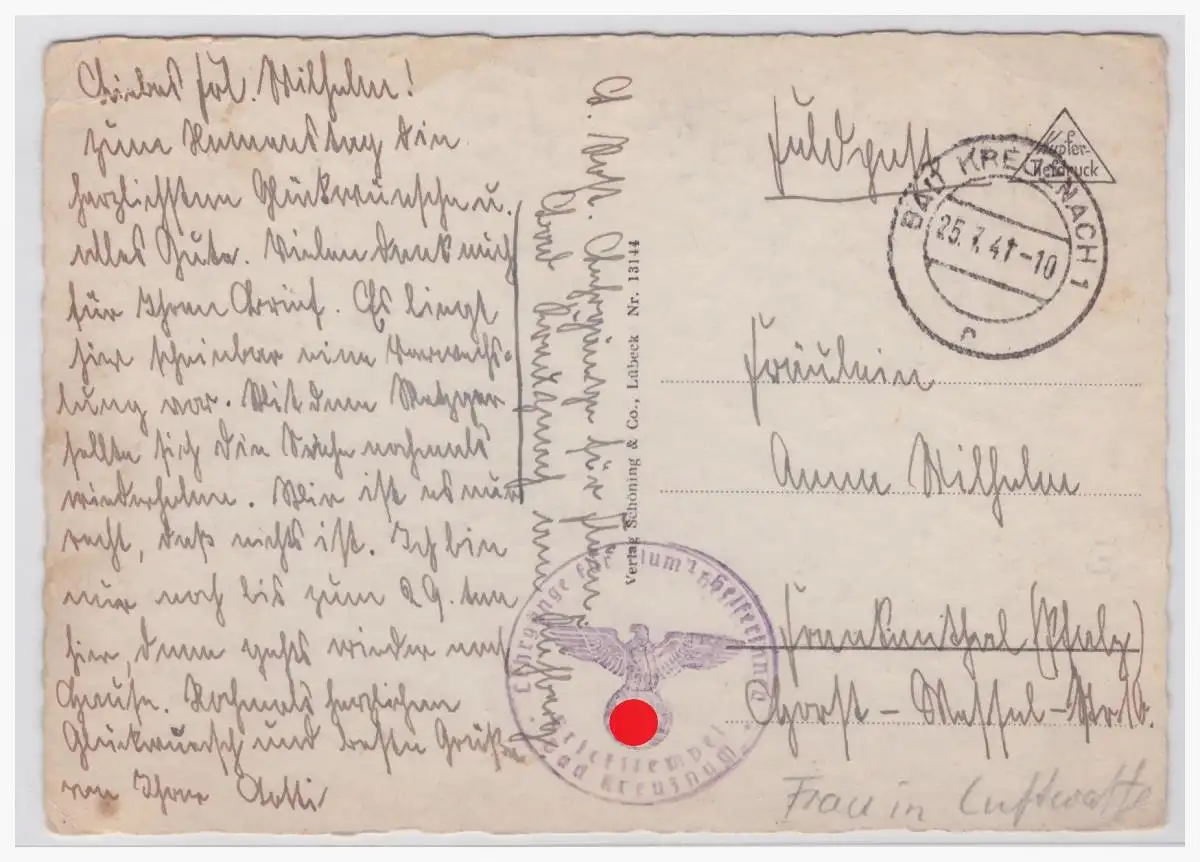 Liebes Frl. Wilhelm!
zum Namenstag die
herzlichsten Glückwünsche u.
alles Gute. Vielen Dank auch
für Ihren Brief. Es liegt
hier scheinbar eine Verwechs-
lung vor. Mit dem Metzger
sollte sich die Sache nochmals
wiederholen. Mir ist es nur
recht, daß nichts ist. Ich bin
nur noch bis zum 29. ten
hier, dann gehts wieder nach
Hause. Nochmals herzlichen
Glückwunsch und beste Grüße
von Ihrer
für
Bad Kreuznach
Verlag Schöning & Co., Lübeck Nr. 13144
Feldpost
Kupfer-
Tiefdruck
BAD KREUZNACH 1
25.7.41-10
c
Fräulein
Anna Wilhelm
Frankenthal (Pfalz)
Horst-Wessel-Str.
Lehrgänge für
Briefstempel
Bad Kreuznach
Frau in Luftwaffe